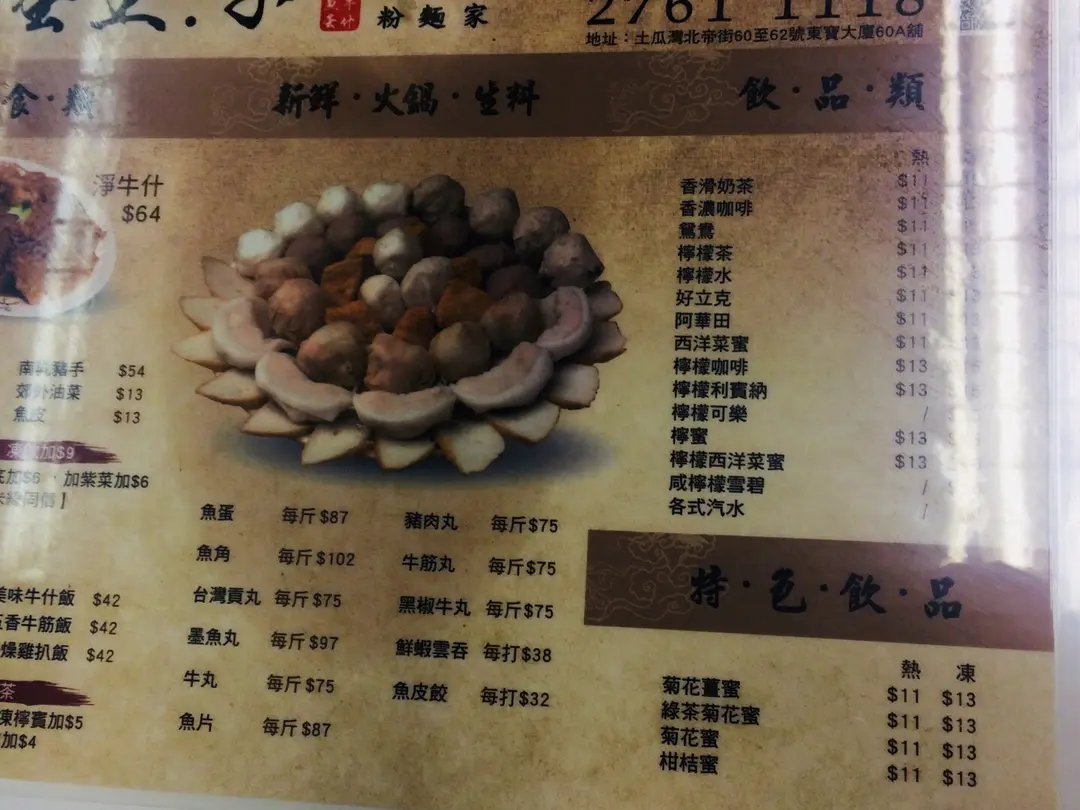 粉麵家
2761 1118
地址：土瓜灣北帝街60至62號東寶大廈60A舖
食·類
新鮮·火鍋·生料
飲·品·類
淨牛什
$64
南乳豬手 $54
郊外油菜 $13
魚皮 $13
加$9
加$6 · 加紫菜加$6
美味牛什飯 $42
五香牛筋飯 $42
燥雞扒飯 $42
茶
凍檸賓加$5
加$4
魚蛋 每斤$87
魚角 每斤$102
台灣貢丸 每斤$75
墨魚丸 每斤$97
牛丸 每斤$75
魚片 每斤$87
豬肉丸 每斤$75
牛筋丸 每斤$75
黑椒牛丸 每斤$75
鮮蝦雲吞 每打$38
魚皮餃 每打$32
熱
香滑奶茶 $11
香濃咖啡 $11
鴛鴦 $11
檸檬茶 $11
檸檬水 $11
好立克 $11
阿華田 $11
西洋菜蜜 $11
檸檬咖啡 $13
檸檬利賓納 $13
檸檬可樂 /
檸蜜 $13
檸檬西洋菜蜜 $13
咸檸檬雪碧 /
各式汽水 /
特·色·飲·品
熱 凍
菊花薑蜜 $11 $13
綠茶菊花蜜 $11 $13
菊花蜜 $11 $13
柑桔蜜 $11 $13